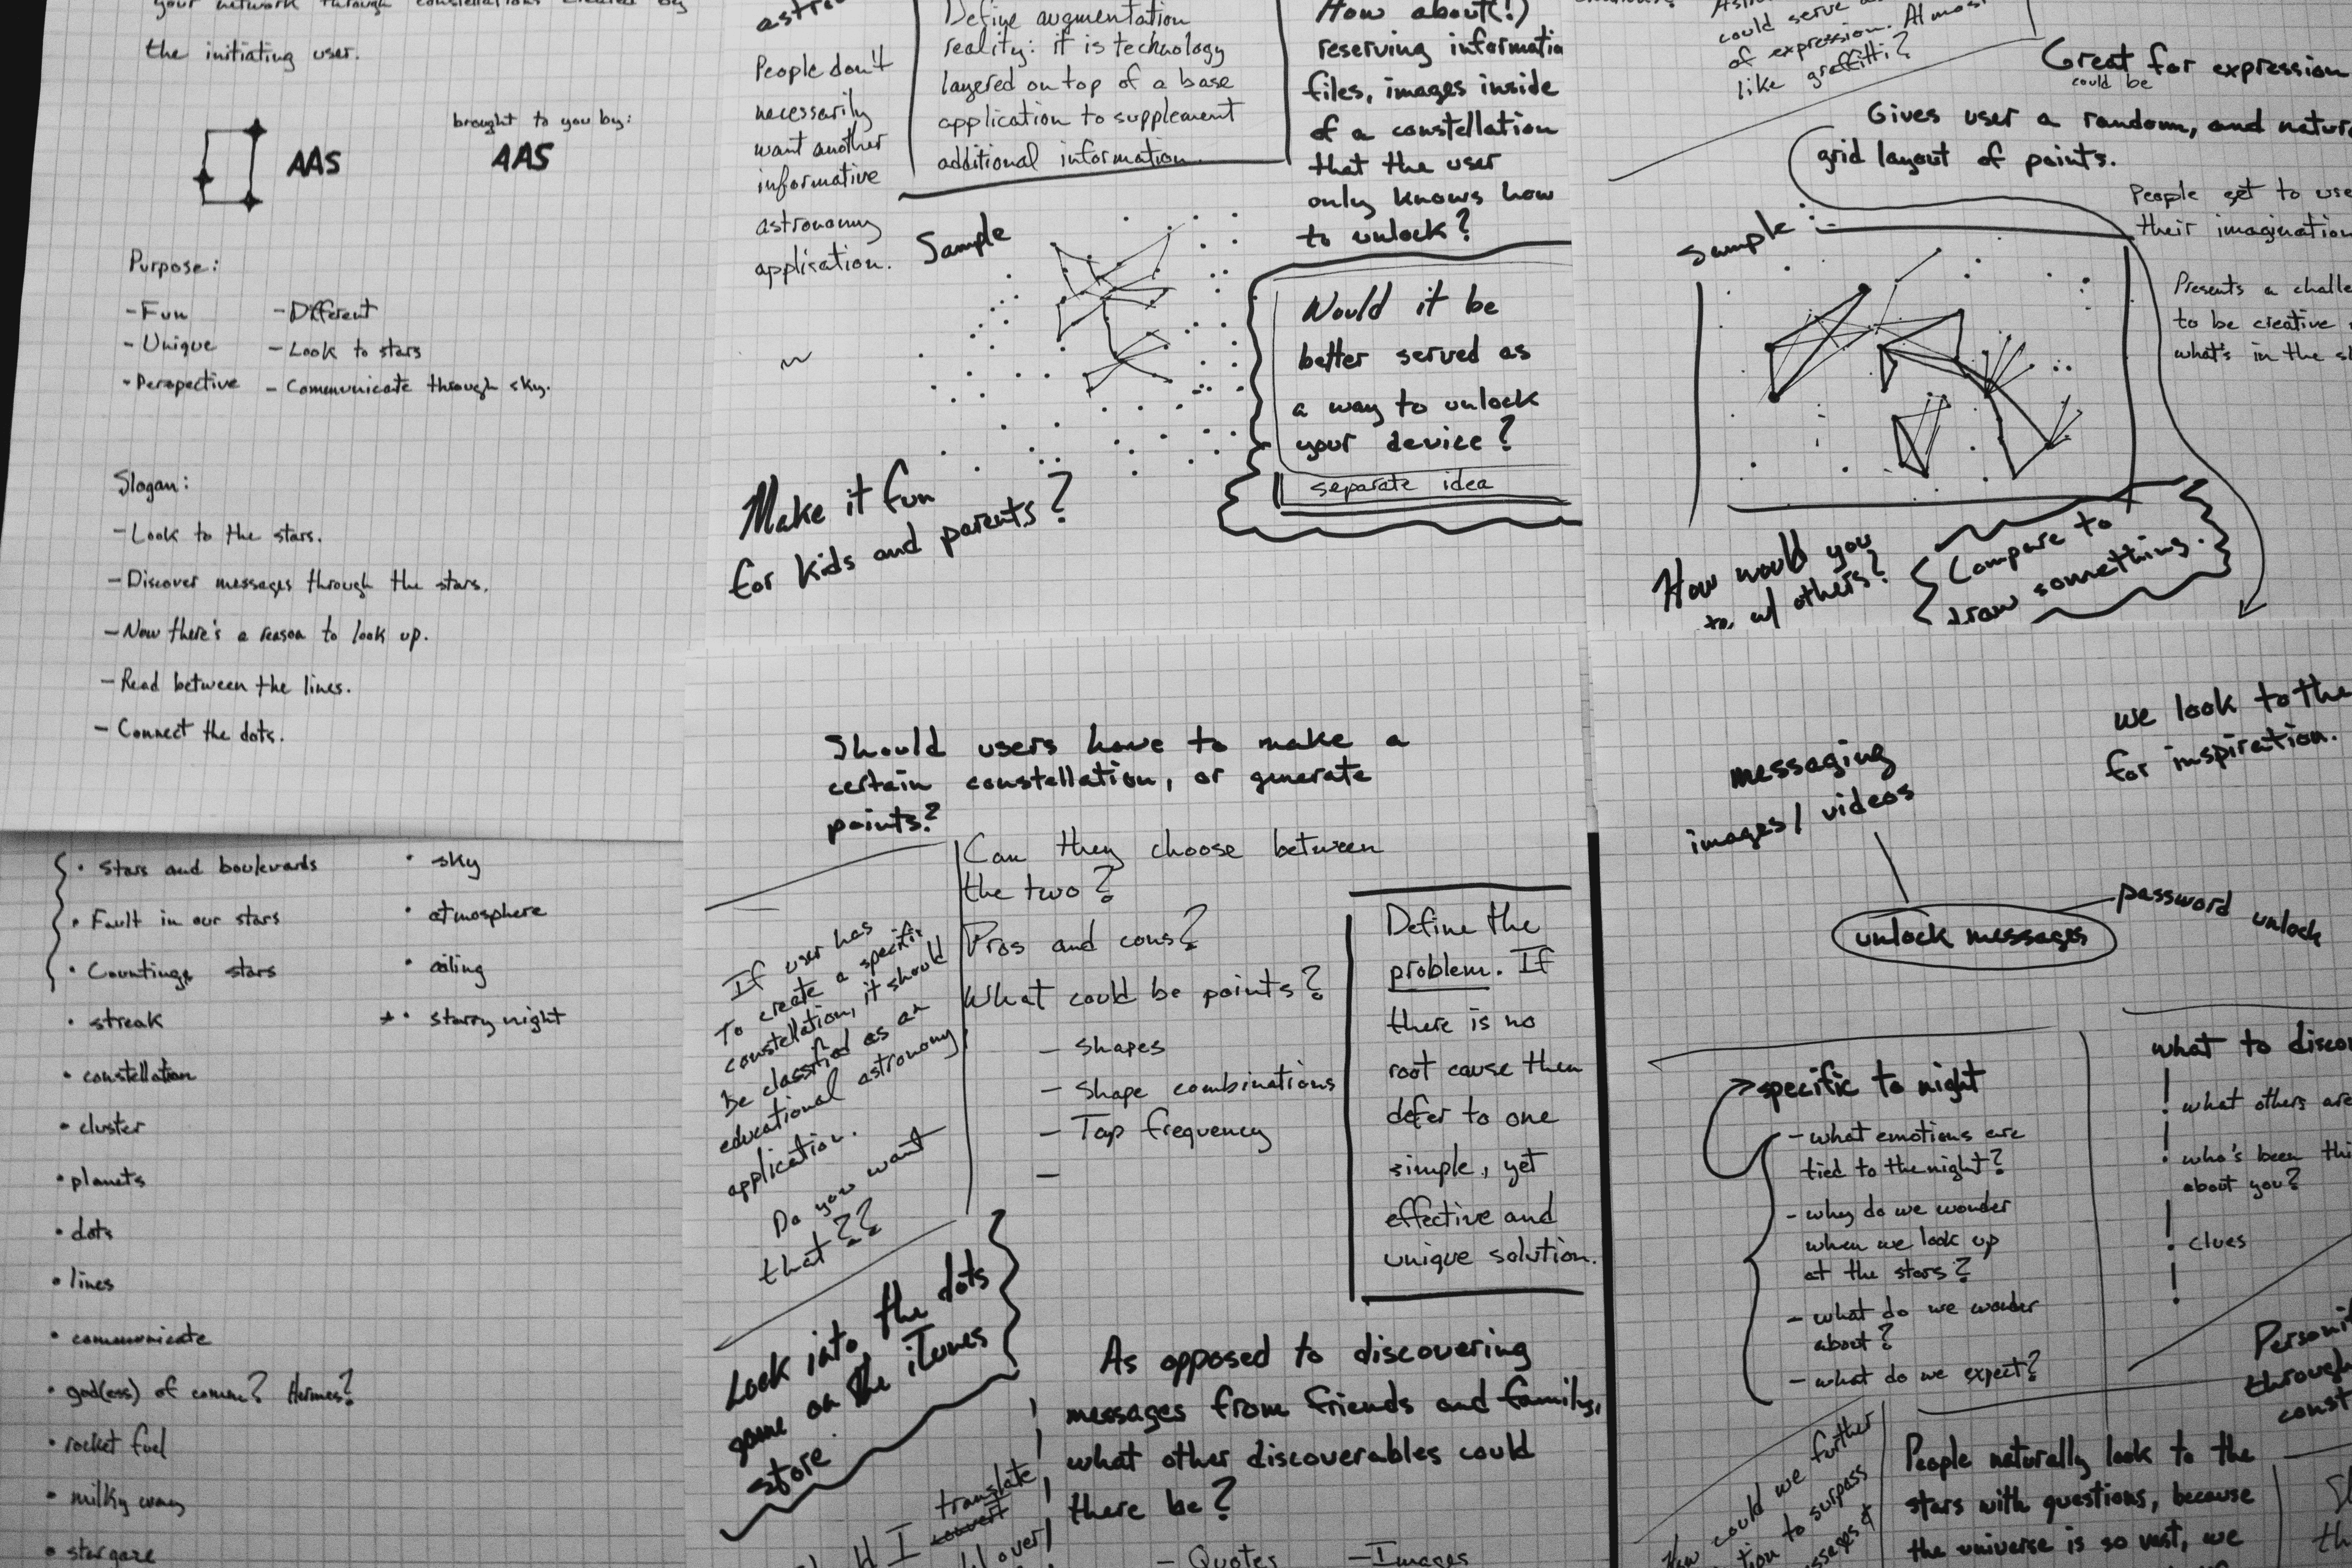 your network through constellations created by
the initiating user.
AAS
brought to you by:
AAS
Purpose:
- Fun
- Unique
- Perspective
- Different
- Look to stars
- Communicate through sky.
Slogan:
- Look to the stars.
- Discover messages through the stars.
- Now there's a reason to look up.
- Read between the lines.
- Connect the dots.
People don't
necessarily
want another
informative
astronomy
application.
Define augmentation
reality: it is technology
layered on top of a base
application to supplement
additional information.
How about(!)
reserving informatio
files, images inside
of a constellation
that the user
only knows how
to unlock?
Sample
Would it be
better served as
a way to unlock
your device?
separate idea
Make it fun
for kids and parents?
could serve
of expression. Almost
like graffitti?
Great for expression
could be
Gives user a random, and natur
grid layout of points.
People get to use
their imagination
Sample:
Presents a challe
to be creative
what's in the s
How would you
w/ others?
Compare to
draw something.
• Stars and boulevards
• Fault in our stars
• Counting stars
• streak
• constellation
• cluster
• planets
• dots
• lines
• communicate
• god(ess) of comm? Hermes?
• rocket fuel
• milky way
• stargaze
• sky
• atmosphere
• ceiling
* • starry night
Should users have to make a
certain constellation, or generate
points?
Can they choose between
the two?
Pros and cons?
What could be points?
- Shapes
- Shape combinations
- Tap frequency
-
If user has
to create a specific
constellation, it should
be classified as an
educational astronomy
application.
Do you want
that??
Define the
problem. If
there is no
root cause then
defer to one
simple, yet
effective and
unique solution.
Look into the dots
game on the iTunes
store.
As opposed to discovering
messages from friends and family,
what other discoverables could
there be?
- Quotes
- Images
translate
I convert
over
we look to the
for inspiration.
messaging
images / videos
unlock messages
password unlock
specific to night
- what emotions are
tied to the night?
- why do we wonder
when we look up
at the stars?
- what do we wonder
about?
- what do we expect?
what to disco
! what others are
! who's been thi
about you?
! clues
!
through
const
could we further
to surpass
People naturally look to the
stars with questions, because
the universe is so vast, we